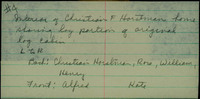 Interior of Christian F Horstman home
showing log portion of original
log cabin
L to R
Back: Christian Horstman, Row, William,
Henry
Front: Alfred Kate